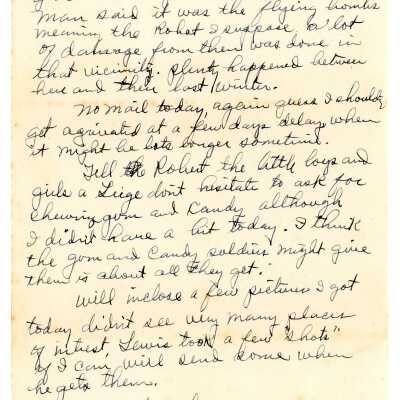 Man said it was the flying bombs
meaning the Robot I suspose a lot
of damage from them was done in
that vicinity. Plenty happened between
here and their last winter.
No mail today, again guess I shouldn't
get agrivated at a few days delay when
it might be lots longer sometime.
Tell Robert the little boys and
girls a Liege don't hesitate to ask for
chewing gom and Candy although
I didn't have a bit today. I think
the gom and candy soldiers might give
them is about all they get.
Will inclose a few pictures I got
today didn't see very many places
of intrest, Lewis took a few "shots"
if I can, will send some when
he gets them.